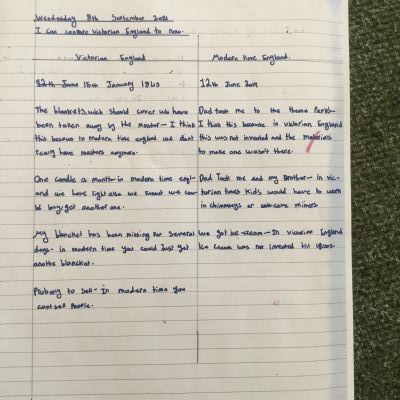 Wednesday 8th September 2021
I can compare Victorian England to now.
Victorian England
Modern time England.
12th June 15th January 1843
The blankets, wich should cover us have
been taken away by the master - I think
this because in modern time england we dont
realy have masters anymore.
One candle a month - in modern time engl-
and we have light also we
d buy/get another one.
My blancket has been missing for several
days - in modern time you could just get
anothe blancket.
Probaly to sell - in modern time you
cant sell people.
12th June 2011
Dad took me to the theme Park -
I think this because in victorian England
this was not invented and the materials
to make one wasn't there.
Dad Took me and my Brother - in vic-
torian times kids would have to work
in chimneys or miners
we got ice-cream - In victorian England
Ice cream was not invented till 1800s